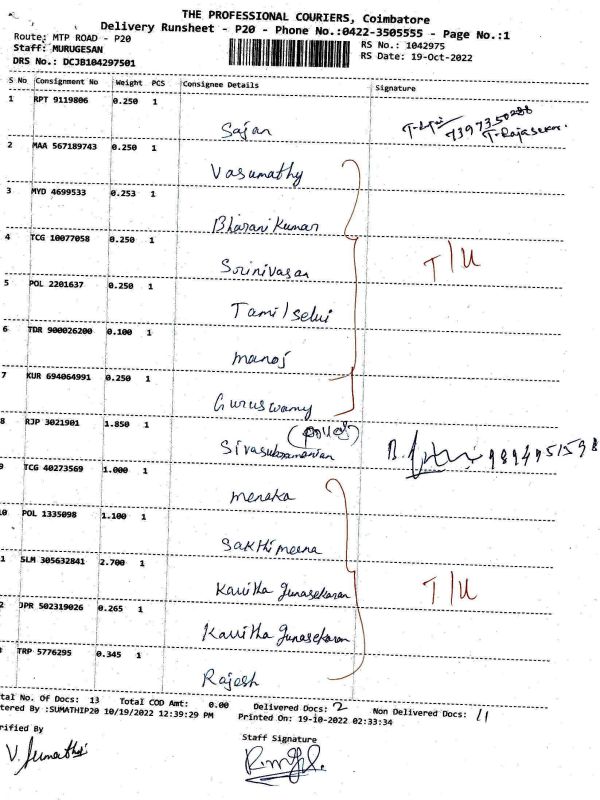 THE PROFESSIONAL COURIERS, Coimbatore
Delivery Runsheet - P20 - Phone No.:0422-3505555 - Page No.:1
Route: MTP ROAD - P20
Staff: MURUGESAN
DRS No.: DCJB104297501
RS No.: 1042975
RS Date: 19-Oct-2022
S No Consignment No Weight PCS Consignee Details Signature
1 RPT 9119806 0.250 1
Sajan
T-Rajasekar.
2 MAA 567189743 0.250 1
Vasumathy
3 MYD 4699533 0.253 1
Bharani Kumar
4 TCG 10077058 0.250 1
Srinivasan
T/U
5 POL 2201637 0.250 1
Tamil selvi
6 TDR 900026200 0.100 1
manoj
7 KUR 694064991 0.250 1
Guruswamy
8 RJP 3021901 1.850 1
Sivasubramanian
9 TCG 40273569 1.000 1
meneka
10 POL 1335098 1.100 1
Sakthi meena
1 SLM 305632841 2.700 1
Kavitha Gunasekaran
T/U
2 JPR 502319026 0.265 1
Kavitha Gunasekaran
TRP 5776295 0.345 1
Rajesh
tal No. Of Docs: 13 Total COD Amt: 0.00 Delivered Docs: 2 Non Delivered Docs: 11
tered By :SUMATHIP20 10/19/2022 12:39:29 PM Printed On: 19-10-2022 02:33:34
rified By
Staff Signature
V. Sumathi